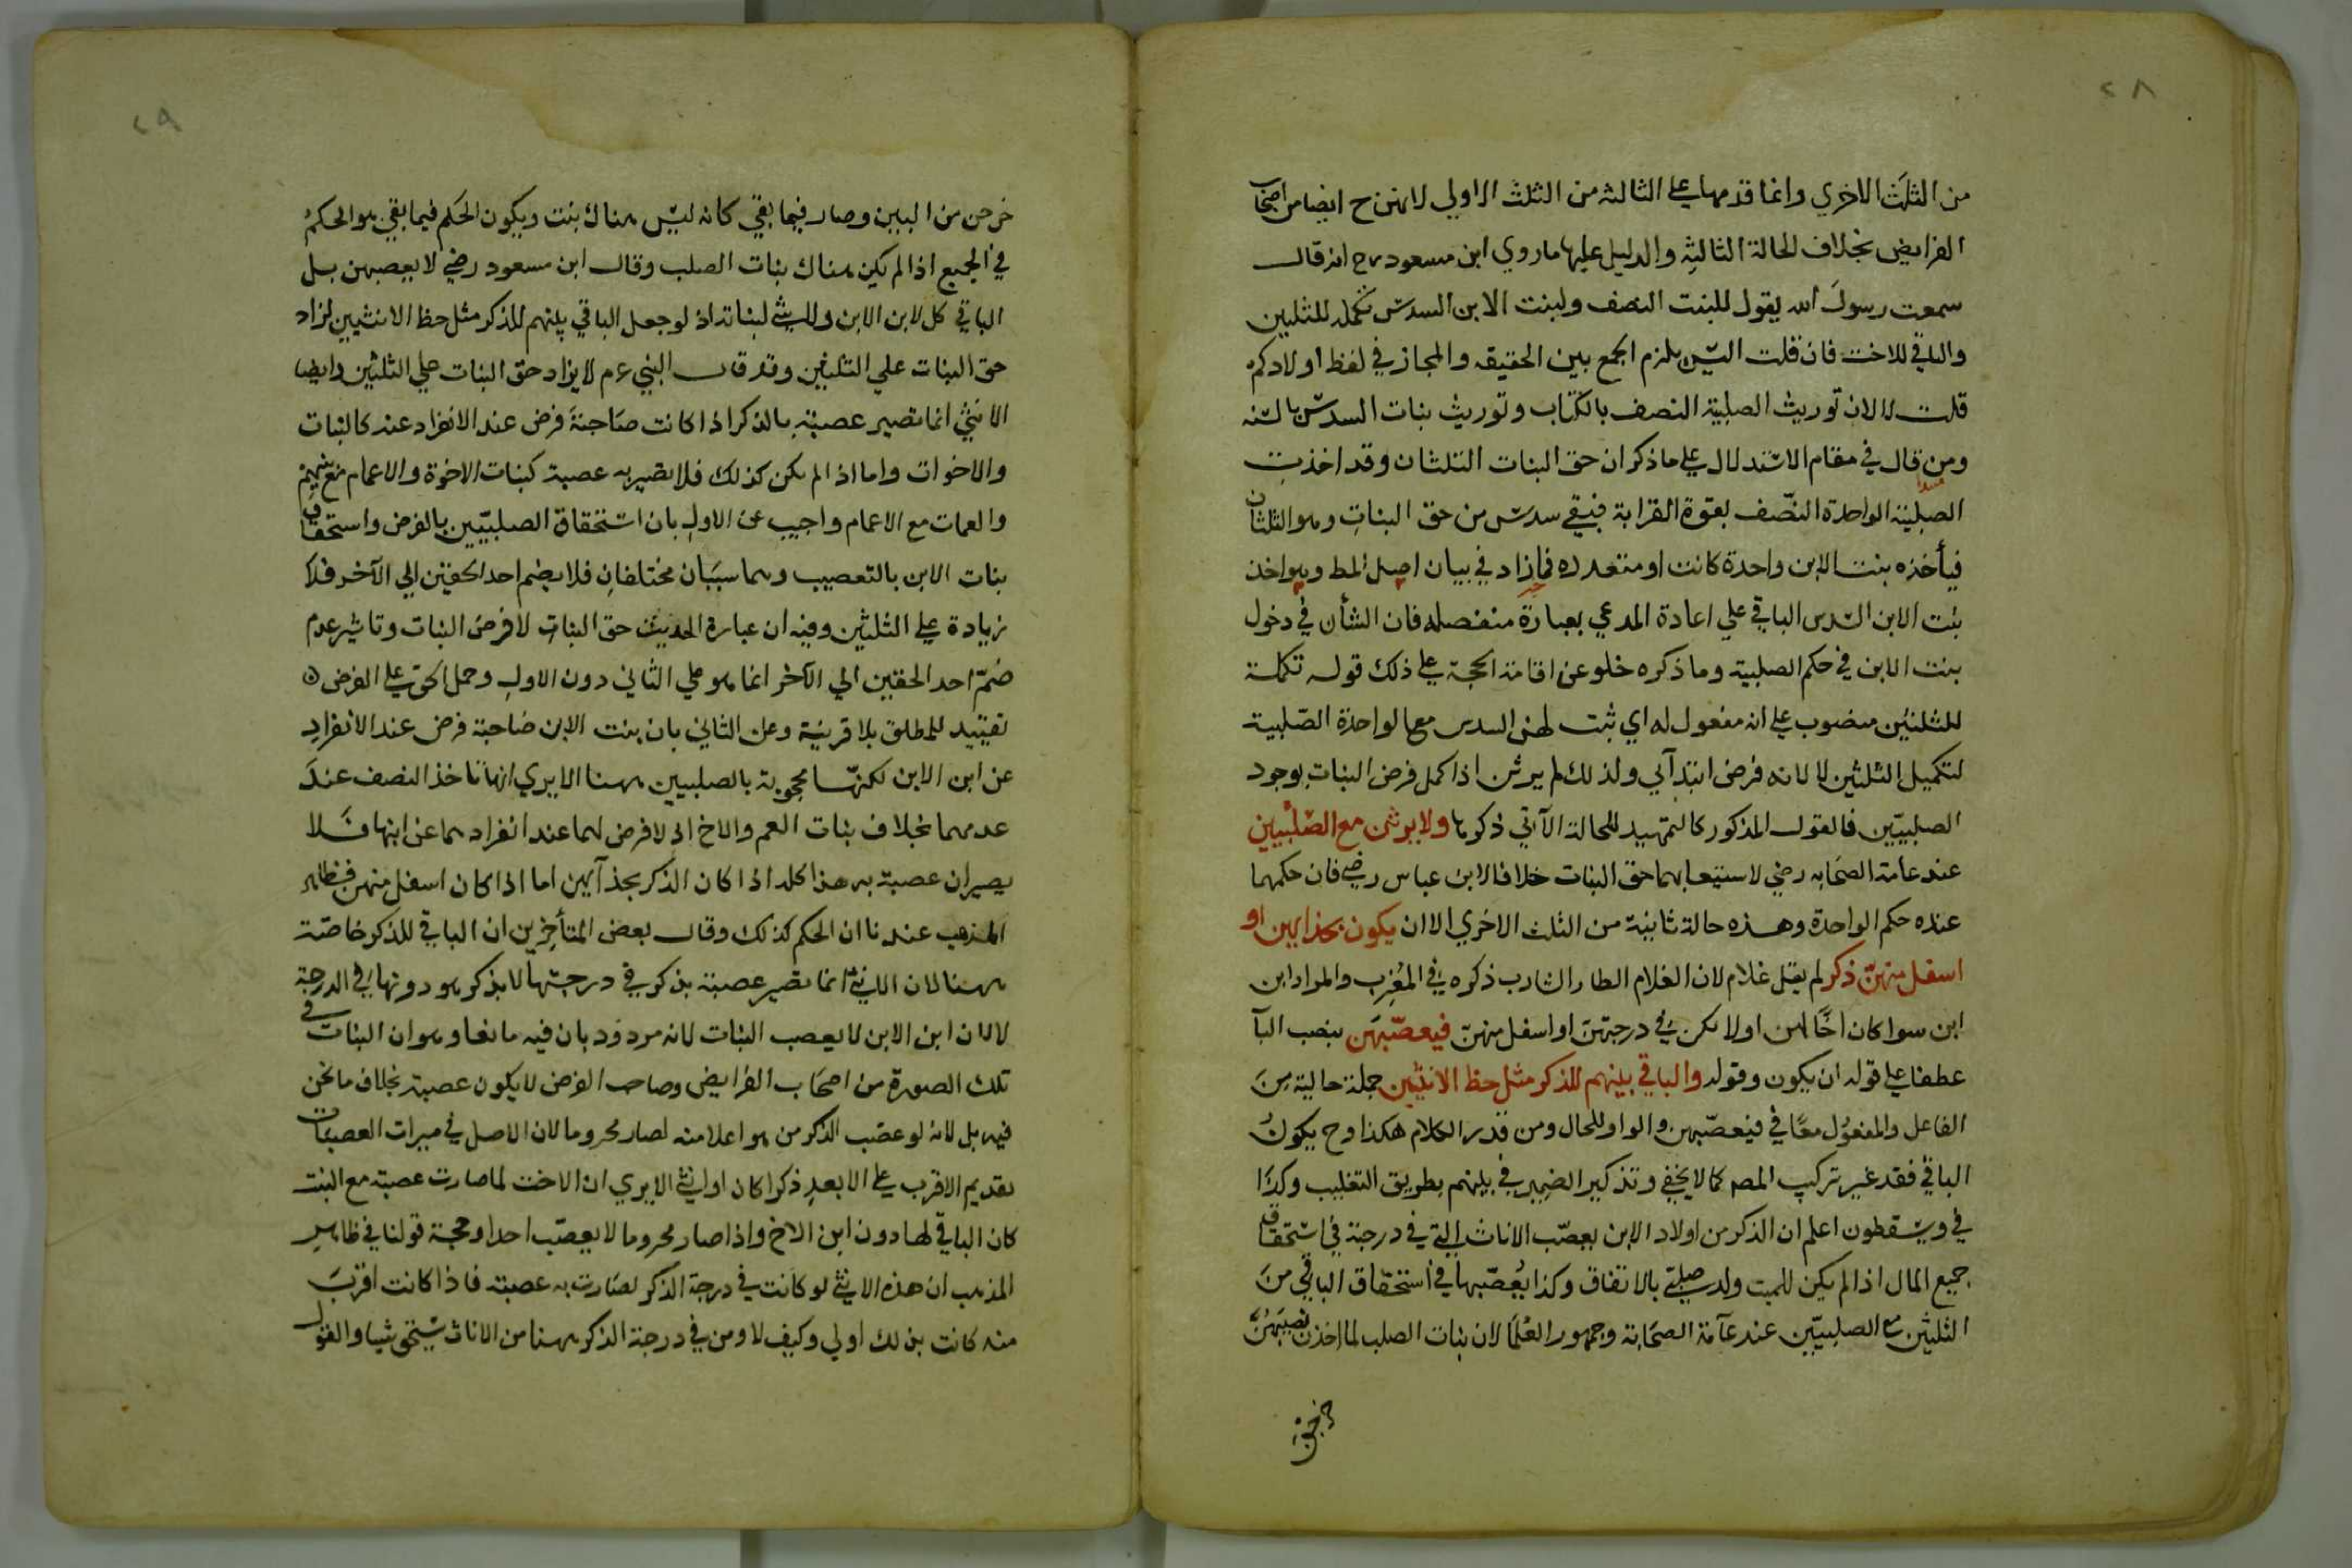 ٢٨
من الثلث الاخري وانما قدمها علي الثالثه من الثلث الاولي لانهن ح ايضا من اصحاب
الفرايض بخلاف الحالة الثالثة والدليل عليها ما روي ابن مسعود رح انه قال
سمعت رسول الله يقول للبنت النصف ولبنت الابن السدس تكمله للثلثين
والباقي للاخت فان قلت اليس يلزم الجمع بين الحقيقه والمجاز في لفظ اولادكم
قلت لا لان توريث الصلبية النصف بالكتاب وتوريث بنات السدس بالسنه
ومن قال في مقام الاستدلال علي ما ذكر ان حق البنات الثلثان وقد اخذت
الصلبية الواحدة النصف بقوة القرابة فبقي سدس من حق البنات وهو الثلثان
فيأخذه بنت الابن واحدة كانت او متعدده فما زاد في بيان اصل المط وهو اخذ
بنت الابن السدس الباقي علي اعادة المدعي بعبارة منفصله فان الشأن في دخول
بنت الابن في حكم الصلبية وما ذكره خلو عن اقامة الحجة علي ذلك قوله تكملة
للثلثين منصوب علي انه مفعول له اي ثبت لهن السدس مع الواحدة الصلبية
لتكميل الثلثين لا لانه فرض ابتدآئي ولذلك لم يرثن اذا كمل فرض البنات بوجود
الصلبيتين فالقول المذكور كالتمهيد للحالة الآتي ذكرها ولا يرثن مع الصلبيتين
عند عامة الصحابه رضي لاستيعابهما حق البنات خلافا لابن عباس رضي فان حكمهما
عنده حكم الواحدة وهذه حالة ثانية من الثلث الاخري الا ان يكون بحذايهن او
اسفل منهن ذكر لم يقل غلام لان الغلام الطار الشارب ذكره في المغرب والمراد ابن
ابن سوا كان اخا لهن اولا يكن في درجتهن او اسفل منهن فيعصبهن بنصب البآ
عطفا علي قوله ان يكون وقوله والباقي بينهم للذكر مثل حظ الانثيين جملة حالية من
الفاعل والمفعول معا في فيعصبهن والواو للحال ومن قدر الكلام هكذا وح يكون
الباقي فقد غير تركيب المصم كما لا يخفي وتذكير الضمير في بينهم بطريق التغليب وكذا
في ويسقطون اعلم ان الذكر من اولاد الابن يعصب الاناث التي في درجة في استحقاق
جميع المال اذا لم يكن للميت ولد صلبي بالاتفاق وكذا يعصبها في استحقاق الباقي من
الثلثين مع الصلبيتين عند عآمة الصحابة وجمهور العلما لان بنات الصلب لما اخذن نصيبهن
خرجن
٢٩
خرجن من البين وصار فيما بقي كانه ليس هناك بنت ويكون الحكم فيما بقي هو الحكم
في الجميع اذا لم يكن هناك بنات الصلب وقال ابن مسعود رضي لا يعصبهن بل
الباقي كل لابن الابن ولا شي لبناته اذ لو جعل الباقي بينهم للذكر مثل حظ الانثيين لزاد
حق البنات علي الثلثين وقد قال النبي ع م لا يزاد حق البنات علي الثلثين وايضا
الانثي انما تصير عصبة بالذكر اذا كانت صاحبة فرض عند الانفراد عنه كالبنات
والاخوات واما اذا لم يكن كذلك فلا تصير به عصبة كبنات الاخوة والاعمام مع بنيهم
والعمات مع الاعمام واجيب عن الاول بان استحقاق الصلبيتين بالفرض واستحقاق
بنات الابن بالتعصيب وهما سببان مختلفان فلا يضم احد الحقين الي الآخر فلا
زيادة علي الثلثين وفيه ان عبارة الحديث حق البنات لا فرض البنات وتاثير عدم
ضم احد الحقين الي الآخر انما هو علي الثاني دون الاول وحمل الحق علي الفرض
تقييد للمطلق بلا قرينة وعن الثاني بان بنت الابن صاحبة فرض عند الانفراد
عن ابن الابن لكنها محجوبة بالصلبيين ههنا الا يري انها تاخذ النصف عند
عدمهما بخلاف بنات العم والاخ اذ لا فرض لهما عند انفرادهما عن ابنها فلا
يصيران عصبة به هذا كله اذا كان الذكر بحذآيهن اما اذا كان اسفل منهن فظاهر
المذهب عندنا ان الحكم كذلك وقال بعض المتأخرين ان الباقي للذكر خاصة
ههنا لان الانثي انما تصير عصبة بذكر في درجتها لا بذكر هو دونها في الدرجة
لا لان ابن الابن لا يعصب البنات لانه مردود بان فيه مانعا وهو ان البنات في
تلك الصورة من اصحاب الفرايض وصاحب الفرض لا يكون عصبة بخلاف ما نحن
فيه بل لانه لو عصب الذكر من هو اعلا منه لصار محروما لان الاصل في ميراث العصبات
تقديم الاقرب علي الابعد ذكرا كان او انثي الا يري ان الاخت لما صارت عصبة مع البنت
كان الباقي لها دون ابن الاخ واذا صار محروما لا يعصب احدا وحجة قولنا في ظاهر
المذهب ان هذه الانثي لو كانت في درجة الذكر لصارت به عصبة فاذا كانت اقرب
منه كانت بذلك اولي وكيف لا ومن في درجة الذكر ههنا من الاناث يستحق شيا والقول